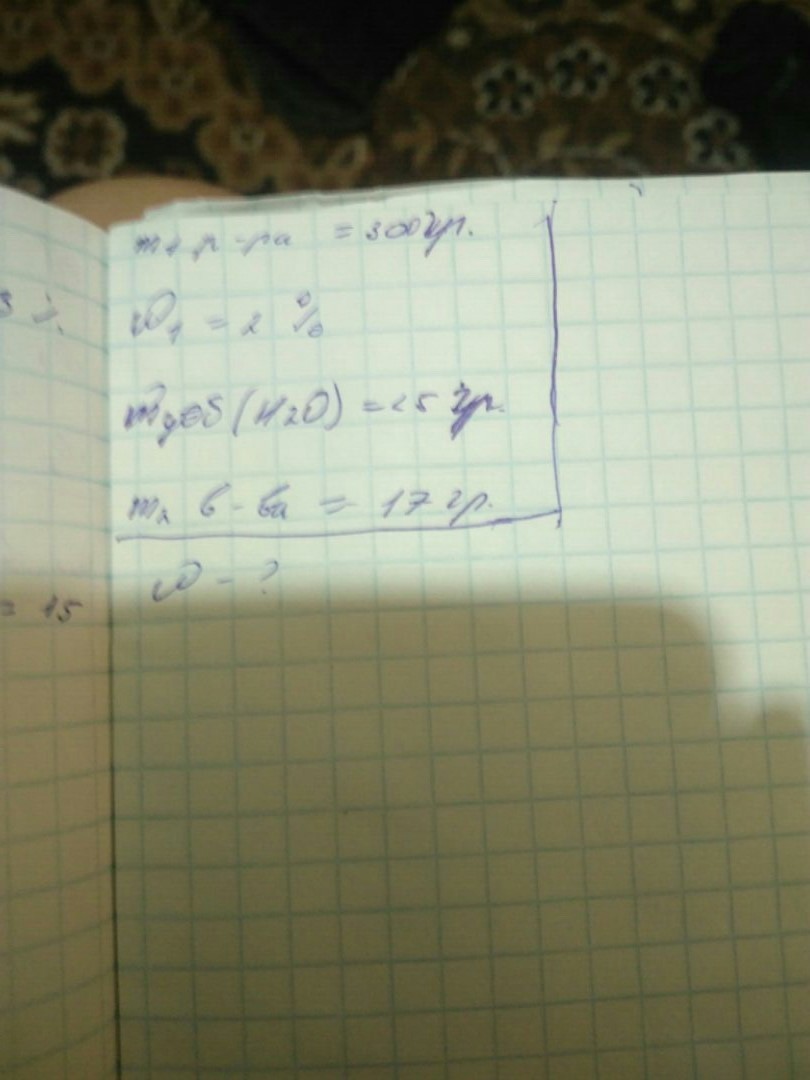 m₁ р-ра = 300 гр.
3 %.
ω₁ = 2 %
m доб (H₂O) = 25 гр.
m₂ в-ва = 17 гр.
ω - ?
= 15